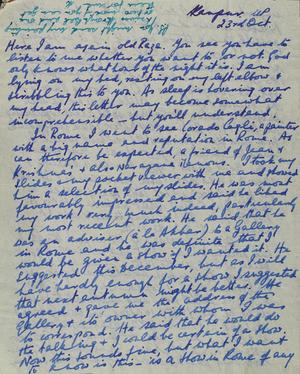 Kanpur, UP
23rd Oct.
Here I am again old Raza. You see you have to
listen to me whether you want to, or not. God
only knows what hour of the night it is. I am
lying on my bed, resting on my left elbow &
scribbling this to you. As sleep is hovering over
my head, this letter may become somewhat
incomprehensible — but you'll understand.
In Rome I went to see Corrado Cagli, a painter
with a big name and reputation in Rome. As
can therefore be expected, a friend of Jean &
Krishna, & also Navagaze. I took my
slides and pocket viewer with me and showed
him a selection of my slides. He was most
favourably impressed and said he liked
my work very much indeed, particularly
my most recent work. He said that he
was an adviser (a la Akbar) to a Gallery
in Rome and he was definite that I
would be given a show if I wanted it. He
suggested this December, but as I will
have hardly enough for a show I suggested
that next autumn might be better. He
agreed & gave me the address of the
Gallery & its owner with whom I was
to correspond. He said that he would do
the talking & I could be certain of a show.
Now this sounds fine, but what I want
to know is this — is a show in Rome of any